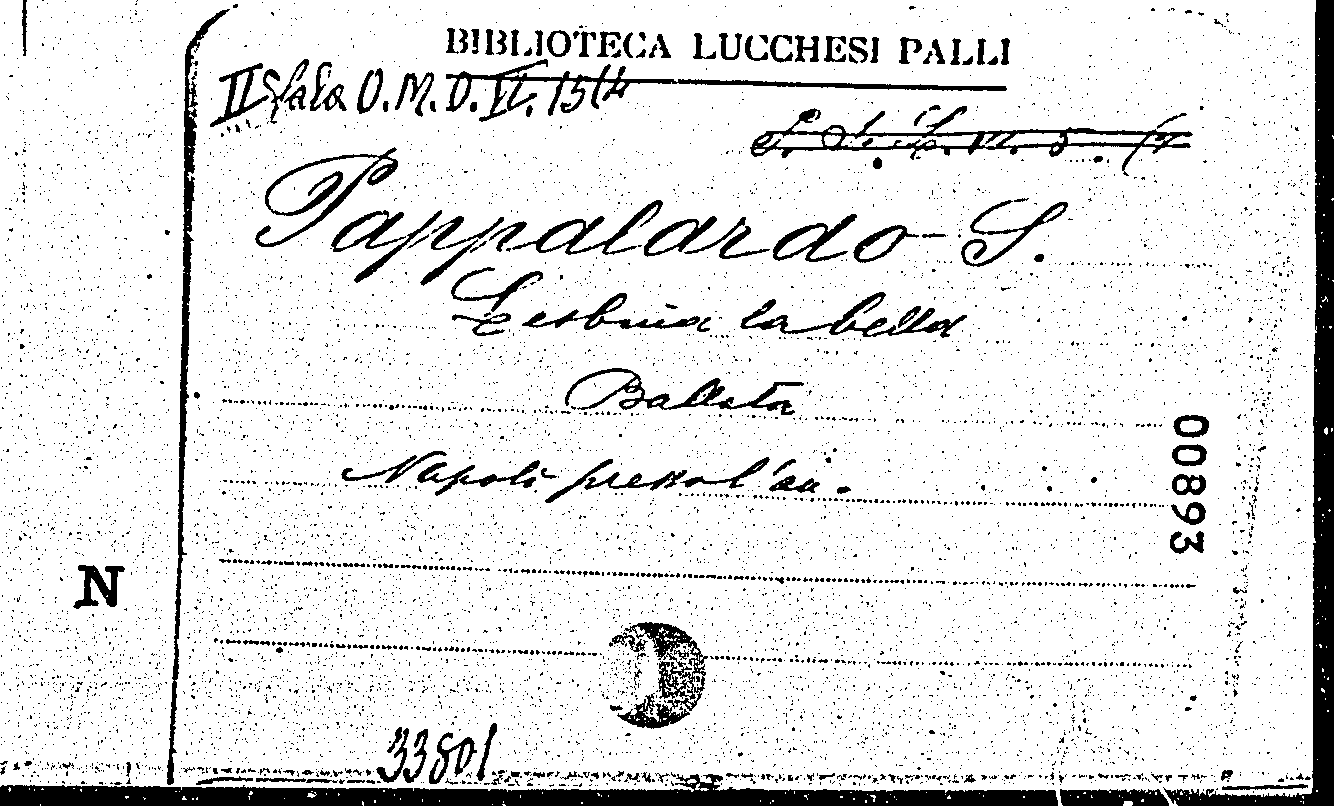 BIBLIOTECA LUCCHESI PALLI
II Sala O.M.D. VI. 15(4
Pappalardo S.
Lesbina la bella
Ballata
Napoli
00893
N
33801